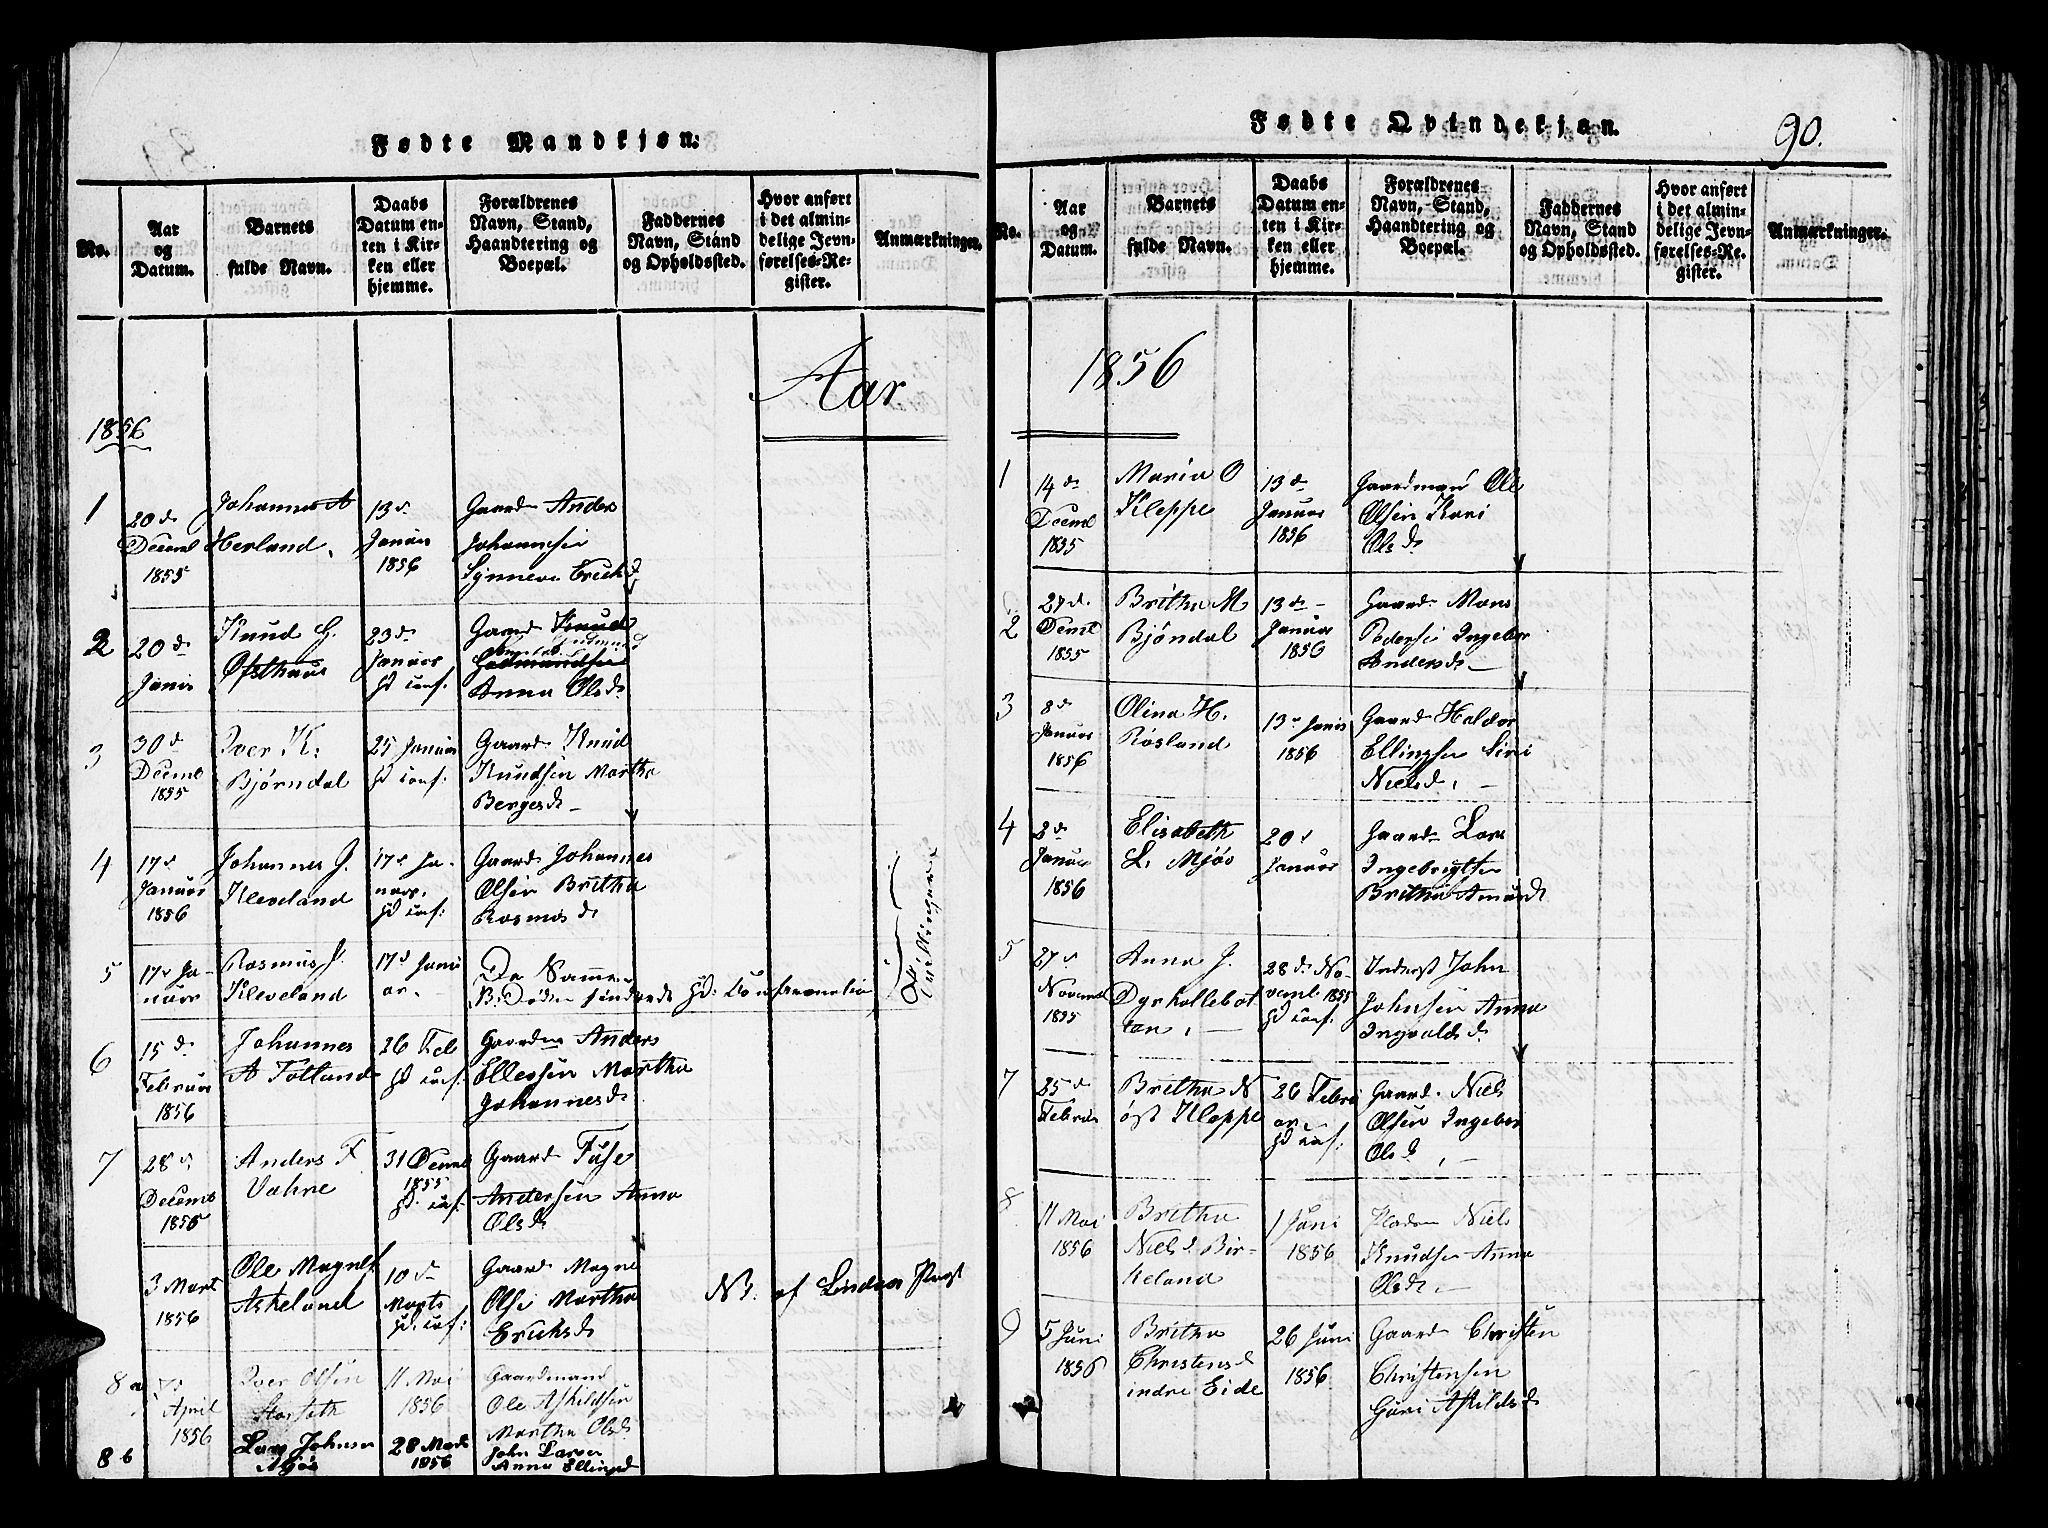 Fødte Mandkjøn:
No.
Aar
og
Datum.
Barnets
fulde Navn.
Daabs
Datum en-
ten i Kir-
ken eller
hjemme.
Forældrenes
Navn, Stand,
Haandtering og
Boepæl.
Faddernes
Navn, Stand
og Opholdssted.
Hvor anført
i det almin-
delige Jevn-
førelses-Re-
gister.
Anmærkninger.
Aar
1856
1
20 d
Deceml
1855
Johannes A
Herland.
13 d
Januar
1856
Gaard Anders
Johannesen
Synneva Ericksd
2
20 d
Janis
Knud G.
Ofsthuus
23 d
Januar
hd conf.
Gaard Knud
Gudmundsen
Anna Olsd
3
30 d
Deceml
1855
Iver K.
Bjørndal
25 Januar
hd conf:
Gaard Knud
Knudsen Martha
Bergesd –
4
17 d
Januar
1856
Johannes J.
Kleveland
17 d Ja-
nuar.
hd conf:
Gaard Johannes
Olsen Britha
Rasmusd
5
17 d Ja-
nuar
Rasmus J.
Kleveland
17 d Janu
ar.
De Samme
Tvillingerne
6
15 d
Februar
1856
Johannes
A Totland
26 Feb
hd conf:
Gaardm Anders
Ellessen Martha
Johannesd
7
28 d
Decemb
1855
Anders F
Vahre
31 Deceml
1855
hd. conf:
Gaard Fuse
Andersen Anna
Olsd
3 Mart
1856
Ole Magnes
Askeland
10 d
Marts
hd. conf:
Gaard Magne
Olse Martha
Ericksd
NB. af Lindaas Præst
8 a
April
1856
Iver Olsen
Storseth
11 Mai
1856
Gaardmand
Ole Askildsen
Martha Olsd
8 b
Lars Johnsen
Mjøs
28 Mai
1856
John Larsen
Anna Ellingsd
Fødte Qvindekjøn.
90.
No.
Aar
og
Datum.
Barnets
fulde Navn.
Daabs
Datum en-
ten i Kir-
ken eller
hjemme.
Forældrenes
Navn, Stand,
Haandtering og
Boepæl.
Faddernes
Navn, Stand
og Opholdssted.
Hvor anført
i det almin-
delige Jevn-
førelses-Re-
gister.
Anmærkninger.
1856
1
14 d
Deceml
1855
Maria O
Kleppe
13 d
Januar
1856
Gaardmand Ole
Olsen Kari
Olsd
2
27 d.
Deceml
1855
Britha M
Bjöndal
13 d –
Januar
1856
Gaard. Mons
Pedersen Ingebor
Andersd –
3
8 d
Januar
1856
Olina H.
Røsland
13 d Janis
1856
Gaard Haldor
Ellingsen Siri
Nielsd. –
4
2 d
Januar
1856
Elisabeth
L. Mjøs
20 d
Januar
Gaard Lars
Ingebrigtsen
Britha Amundsd
5
27 d
Novemb
1855
Anna J.
Dyrkollebot
ten. –
28 d No-
vemb 1855
hd conf.
Inderst John
Johnsen Anna
Ingvaldsd
7
25 d
Februar
Britha N
øst Kleppe
26 Febru
ar.
hd conf:
Gaard. Niels
Olsen Ingebor
Olsd. –
8
11 Mai
1856
Britha
Nielsd. Bir-
keland
1 Juni
1856
Pladsm Niels
Knudsen Anna
Olsd. –
9
5 Juni
1856
Britha
Christensd
indre Eide
26 Juni
1856
Gaard Christen
Christensen
Guri Askildsd